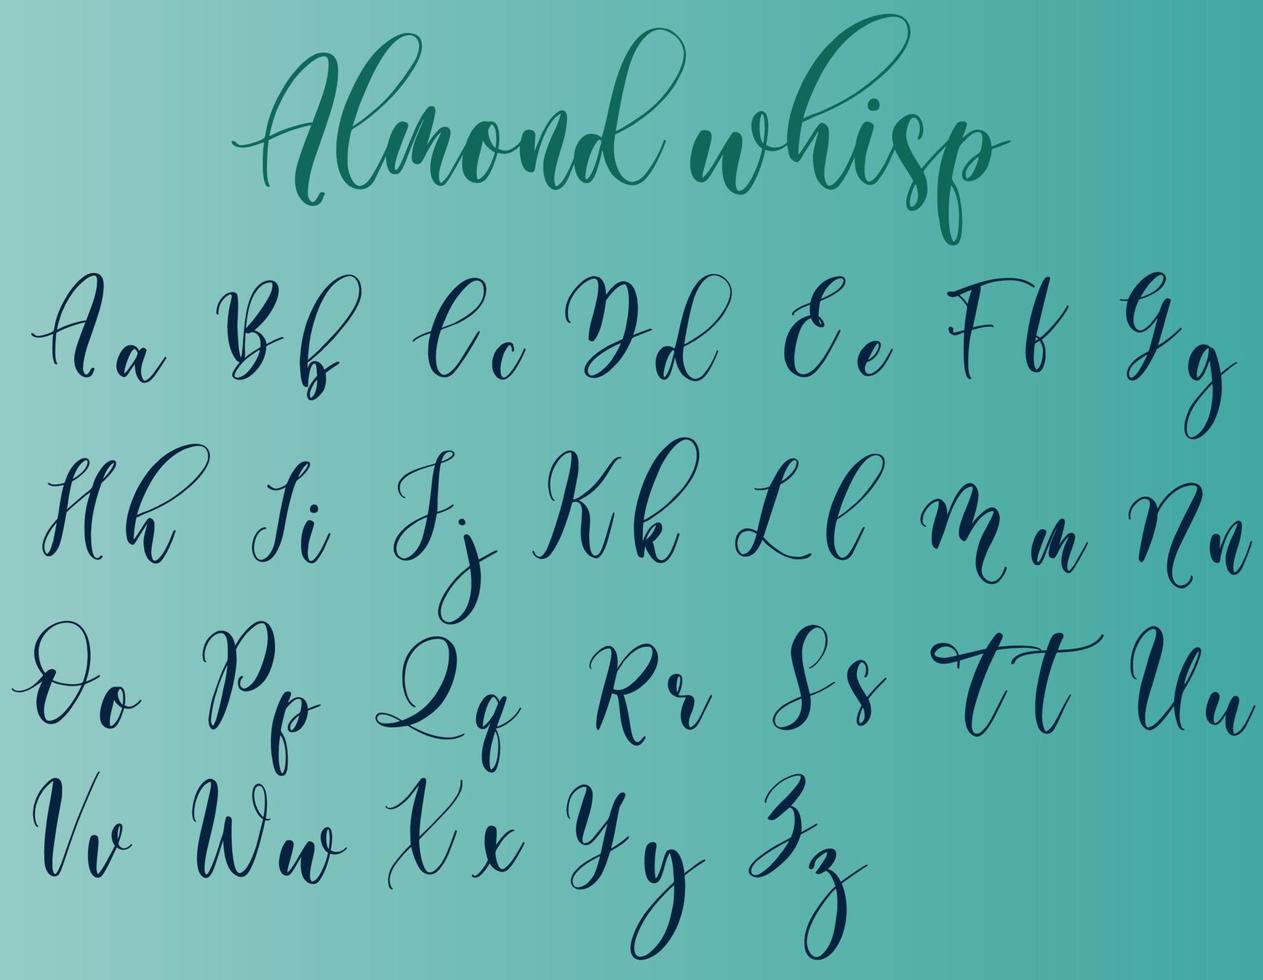 Almond whisp
Aa Bb Cc Dd Ee Ff Gg
Hh Ii Jj Kk Ll Mm Nn
Oo Pp Qq Rr Ss Tt Uu
Vv Ww Xx Yy Zz